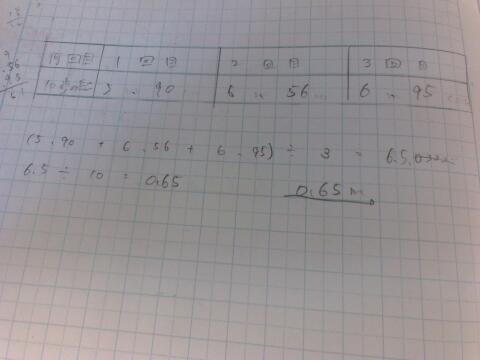 回 1 回 目 2 回 目 3 回 目
10 5.90 6.56 6.95
(5.90 + 6.56 + 6.95) ÷ 3 = 6.5
6.5 ÷ 10 = 0.65
0.65m